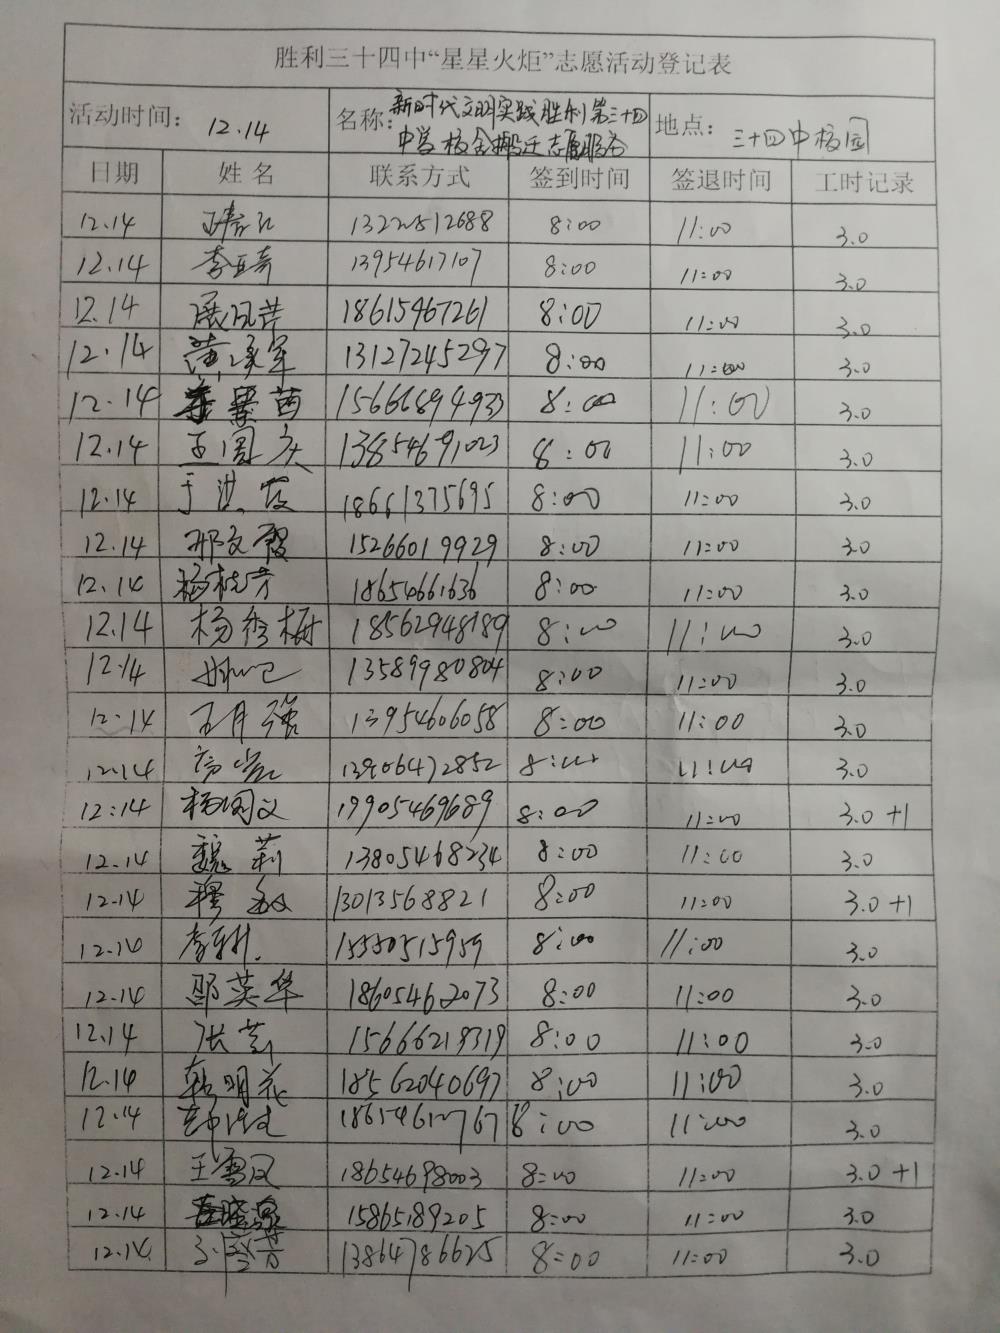 胜利三十四中“星星火炬”志愿活动登记表
活动时间： 12.14 名称： 新时代文明实践胜利第三十四 地点： 三十四中校园
中学校舍搬迁志愿服务
日期 姓名 联系方式 签到时间 签退时间 工时记录
12.14 8:00 11:00 3.0
12.14 李亚奇 13954617107 8:00 11:00 3.0
12.14 展风芹 18615467261 8:00 11:00 3.0
12.14 13127245297 8:00 11:00 3.0
12.14 15666894933 8:00 11:00 3.0
12.14 王国庆 13854691023 8:00 11:00 3.0
12.14 于洪霞 18661375695 8:00 11:00 3.0
12.14 邢文霞 15266019929 8:00 11:00 3.0
12.14 杨桂芳 18654661636 8:00 11:00 3.0
12.14 杨秀梅 18562948189 8:00 11:00 3.0
12.14 13589980804 8:00 11:00 3.0
12.14 王月强 13954606058 8:00 11:00 3.0
12.14 13906472852 8:00 11:00 3.0
12:14 杨国文 19905469689 8:00 11:00 3.0 +1
12.14 魏莉 13805468234 8:00 11:00 3.0
12.14 穆敏 13013568821 8:00 11:00 3.0 +1
12.14 15550515959 8:00 11:00 3.0
12.14 邵英华 18605462073 8:00 11:00 3.0
12.14 张莉 15666218319 8:00 11:00 3.0
12.14 韩明花 18562040697 8:00 11:00 3.0
12.14 8:00 11:00 3.0
12.14 王雪凤 18654698003 8:00 11:00 3.0 +1
12.14 15865189205 8:00 11:00 3.0
12.14 13864786625 8:00 11:00 3.0